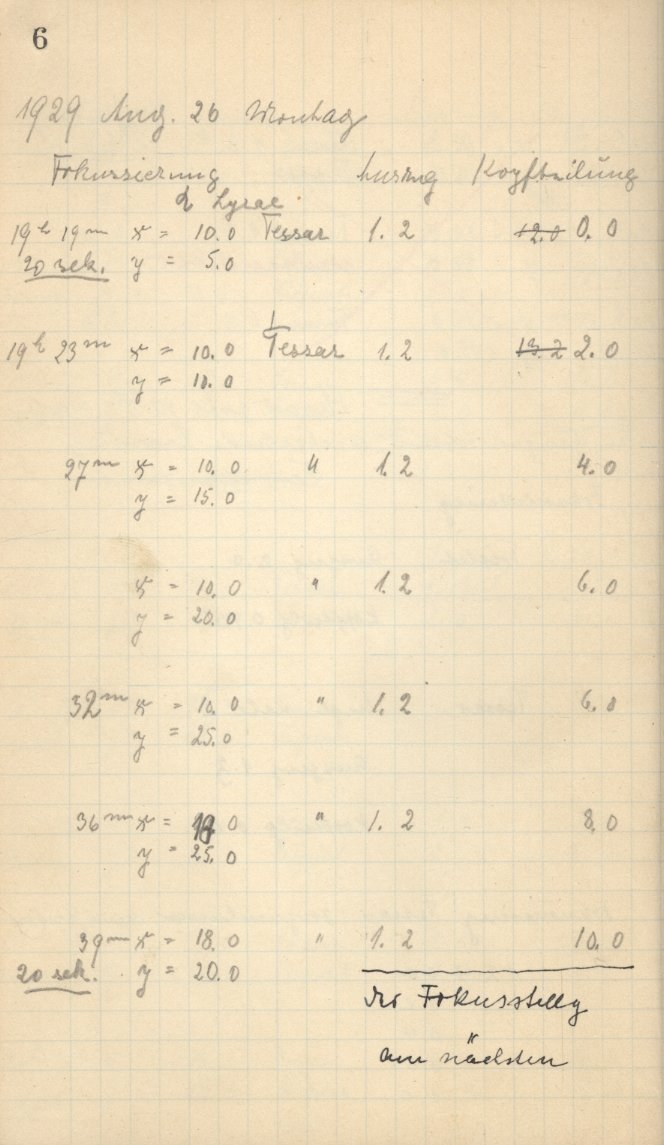 6
1929 Aug. 26 Montag
Fokussierung Auszug Kopfteilung
α Lyrae
19h 19m x = 10.0 Tessar 1.2 12.0 0.0
20 sek. y = 5.0
19h 23m x = 10.0 Tessar 1.2 13.2 2.0
y = 10.0
27m x = 10.0 " 1.2 4.0
y = 15.0
x = 10.0 " 1.2 6.0
y = 20.0
32m x = 10.0 " 1.2 6.0
y = 25.0
36m x = 18.0 " 1.2 8.0
y = 25.0
39m x = 18.0 " 1.2 10.0
20 sek. y = 20.0
der Fokusstellg
am nächsten